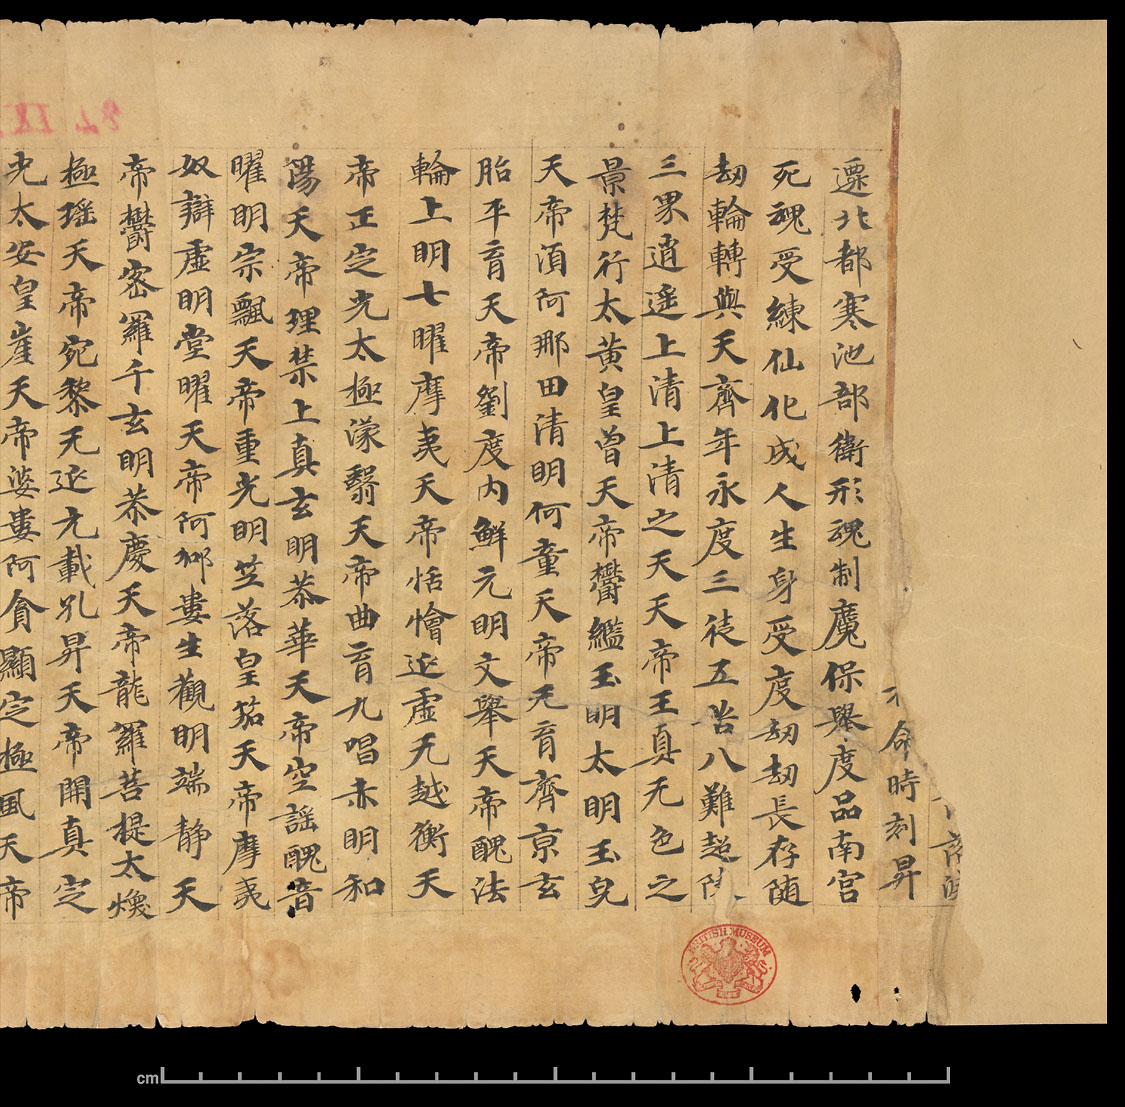 命時刻昇
遷北都寒池部衛形魂制魔保舉度品南宮
死魂受練仙化成人生身受度劫劫長存随
劫輪轉與天齊年永度三徒五苦八難超
三界逍遥上清上清之天天帝玉真无色之
景梵行太黃皇曾天帝欝鑑玉明太明玉皃
天帝湏阿那田清明何童天帝无育齊京玄
胎平育天帝劉度内鮮元明文舉天帝醜法
輪上明七曜摩夷天帝恬憎延虚无越衡天
帝正定光太極濛翳天帝曲育九唱赤明和
陽天帝理禁上真玄明恭華天帝空謡醜音
曜明宗飄天帝重光明竺落皇笳天帝摩夷
奴辯虚明堂曜天帝阿䣊婁生觀明端静天
帝欝密羅千玄明恭慶天帝龍羅菩提太煥
極瑶天帝宛黎无延元載孔昇天帝開真定
光太安皇崖天帝婆婁阿貪顯定極風天帝
BRITISH MUSEUM